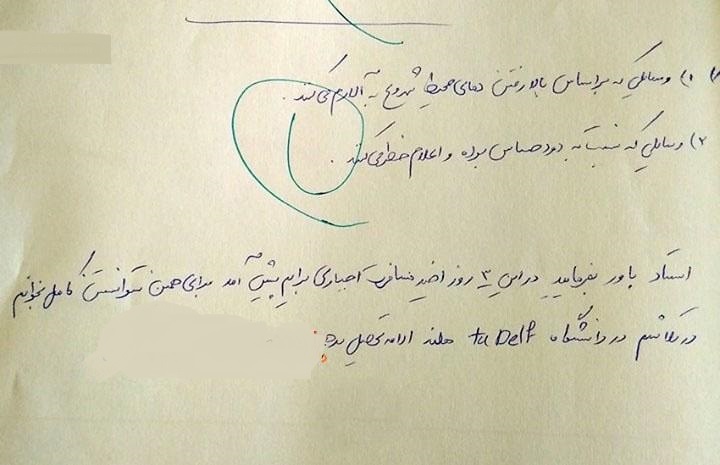 ۱) وسایلی که براساس بالا رفتن دمای محیط شروع به آلارم می‌کند.
۲) وسایلی که نسبت به دود حساس بوده و اعلام خطر می‌کند.
استاد باور بفرمایید در این ۳ روز اخیر مسافرت اجباری برایم پیش آمد برای همین نتوانستم کامل بخوانم
در تلاشم در دانشگاه tu Delf هلند ادامه تحصیل بدم